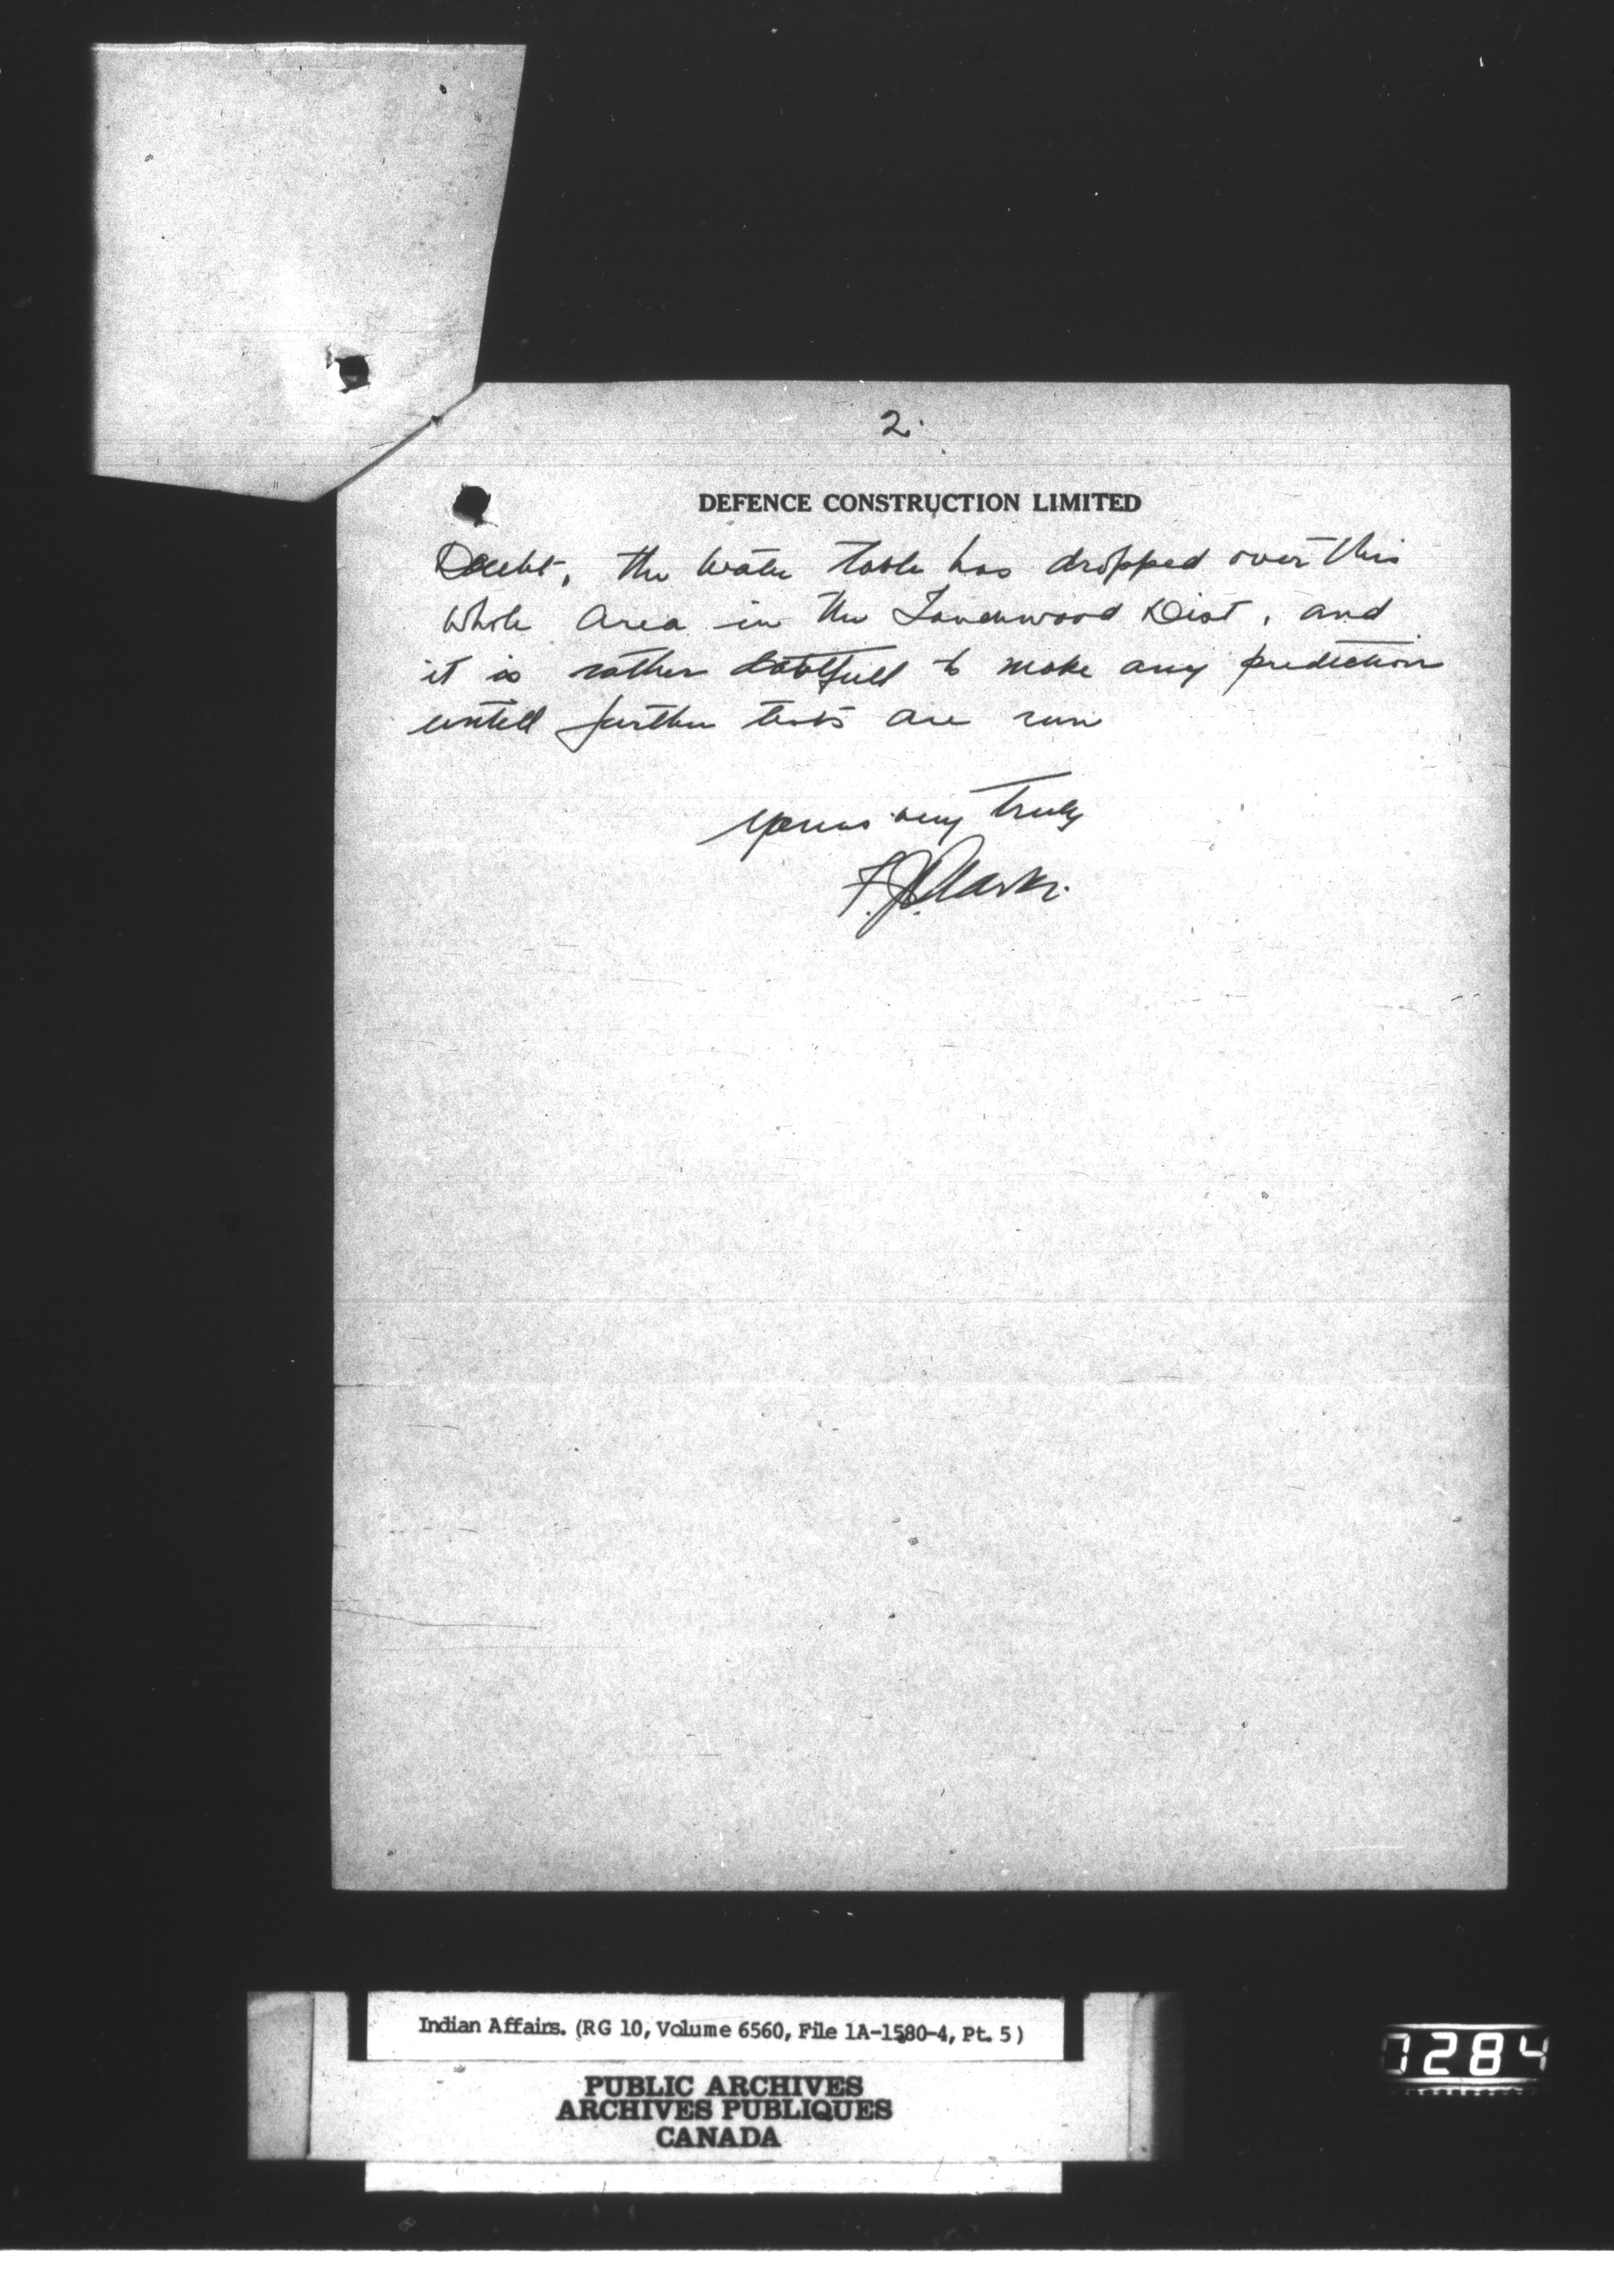 2.
DEFENCE CONSTRUCTION LIMITED
Doubt, the water table has dropped over this
whole area in the Dist, and
it is rather to make any prediction
untill further tests are run
yours very truly
F.J. Clark.
Indian Affairs. (RG 10, Volume 6560, File 1A-1580-4, Pt. 5)
PUBLIC ARCHIVES
ARCHIVES PUBLIQUES
CANADA
0284